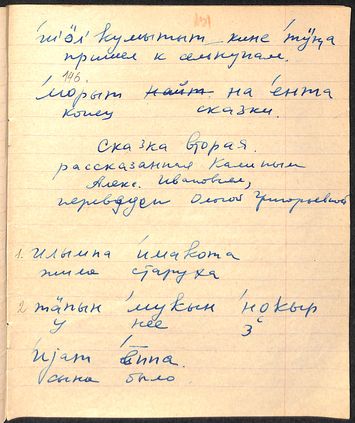 'шöл' кумытып кинс тӱӈа
пришел к селькупам.
146.
'морыт найт на 'ента
конец сказки.
Сказка вторая.
рассказанная Калиным
Алекс. Ивановичем,
переведен Ольгой Григорьевной
1. илымпа 'имакота
жила старуха
2 тӓпын 'мукын 'нокыр
у нее 3
'иjат 'ēппа.
сына было.